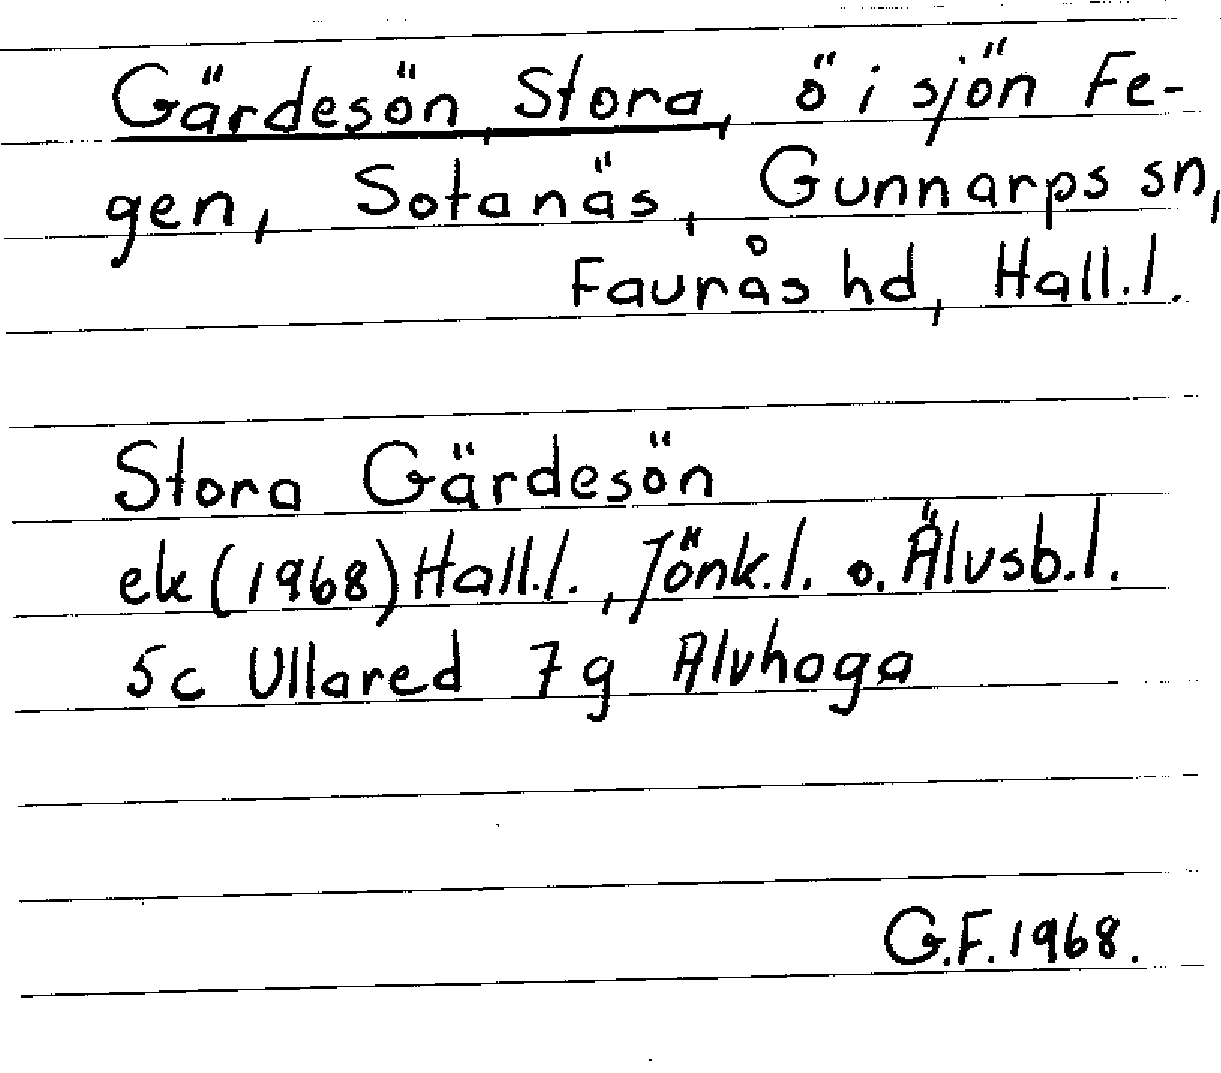 Gärdesön, Stora, ö i sjön Fe-
gen, Sotanäs, Gunnarps sn,
Faurås hd, Hall.l.
Stora Gärdesön
ek (1968) Hall.l., Jönk.l. o. Älvsb.l.
5c Ullared 7g Alvhaga
G.F. 1968.